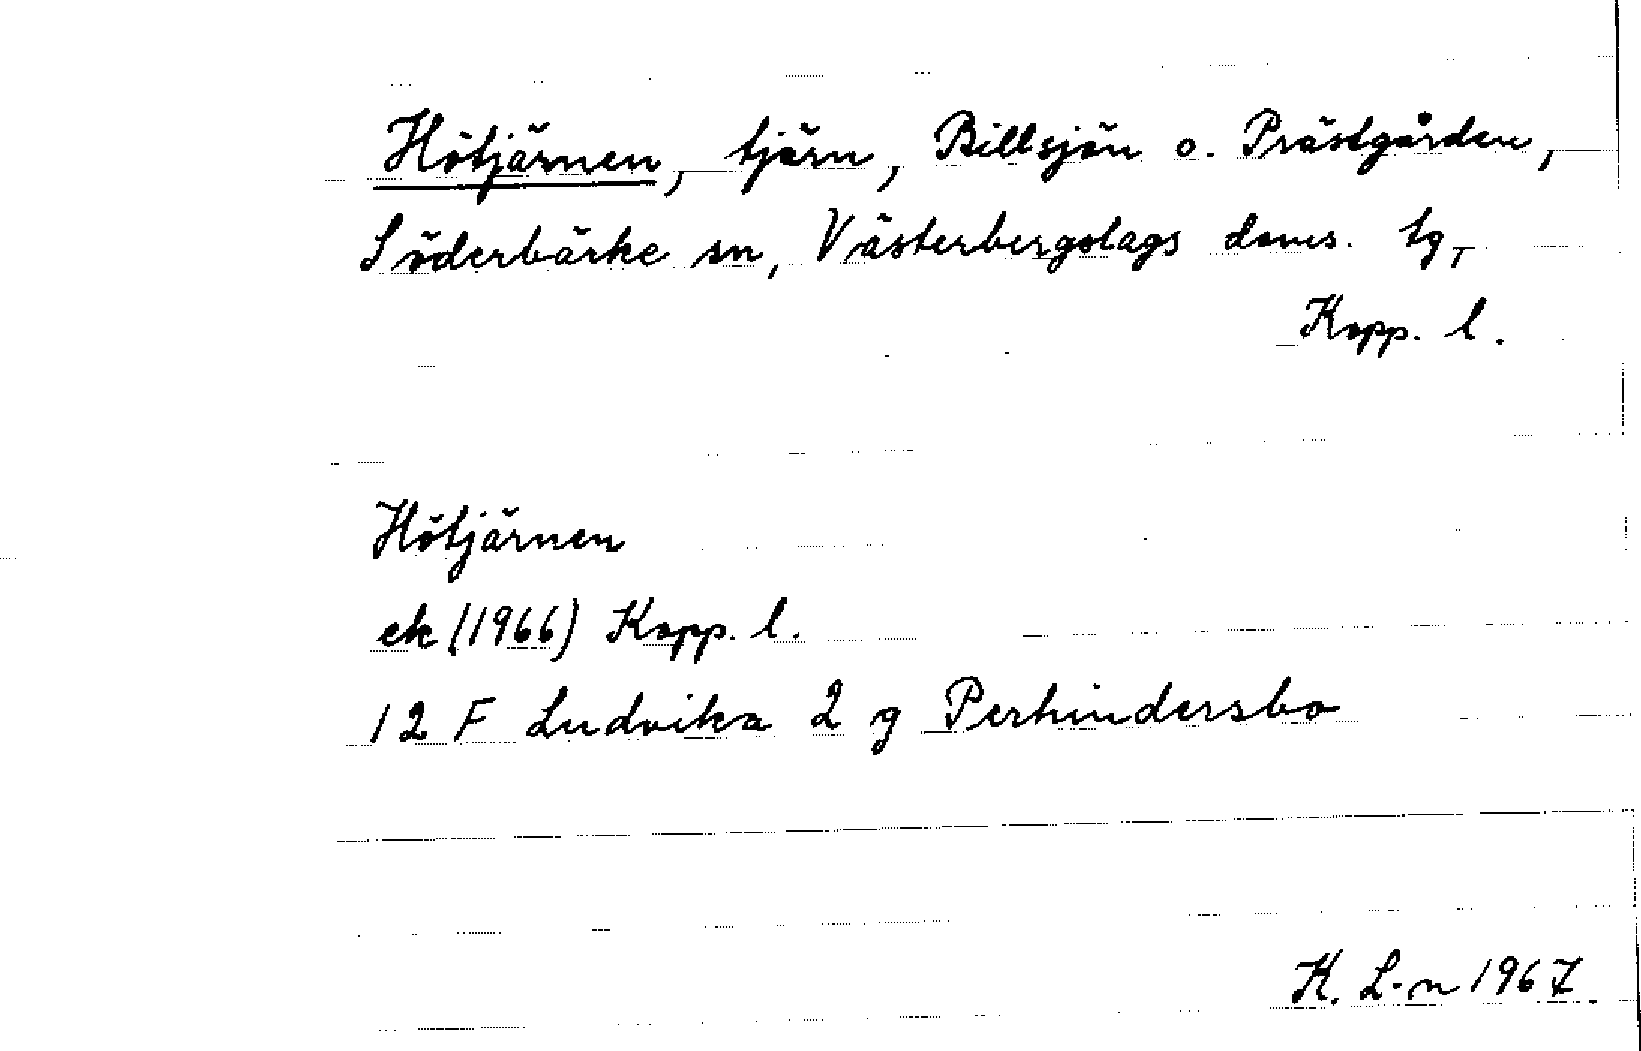 Hötjärnen, tjärn, Billsjön o. Prästgården,
Söderbärke sn, Västerbergslags doms. tg,
Kopp. l.
Hötjärnen
ek (1966) Kopp. l.
12 F Ludvika 2 g Perhindersbo
K. L-n 1967